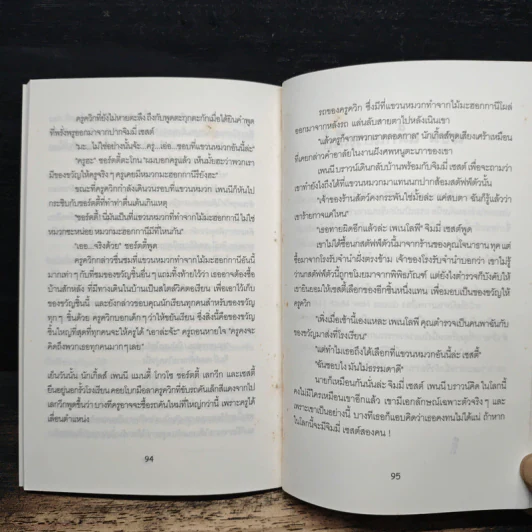 ครูควิกที่ยังไม่หายตะลึง ถึงกับพูดตะกุกตะกักเมื่อได้ยินคำพูด
ที่พรั่งพรูออกมาจากปากจิมมี่ เชสต์
"นะ...ไม่ใช่อย่างนั้นจ้ะ...ครู...เอ้อ...ชอบที่แขวนหมวกอันนี้ล่ะ"
"ครูฮะ" ชอร์ตตี้ตะโกน "ผมบอกครูแล้ว เห็นมั้ยฮะว่าพวกเรา
มีของขวัญให้ครูจริง ๆ ครูเคยมีหมวกมะฮอกกานีรึยังฮะ"
ขณะที่ครูควิกกำลังเดินวนรอบที่แขวนหมวก เพนนีก็หันไป
กระซิบกับชอร์ตตี้ที่ทำท่าตื่นเต้นเกินเหตุ
"ชอร์ตตี้! นี่มันเป็นที่แขวนหมวกที่ทำจากไม้มะฮอกกานี ไม่ใช่
หมวกมะฮอกกานีที่ไหนกัน"
"เออ...จริงด้วย" ชอร์ตตี้พูด
ครูควิกกล่าวชื่นชมที่แขวนหมวกที่ทำจากไม้มะฮอกกานีอันนี้
มากเท่า ๆ กับที่ชมของขวัญชิ้นอื่น ๆ แถมทิ้งท้ายไว้ว่า เธออาจต้องซื้อ
บ้านสักหลัง ที่มีทางเดินในบ้านเป็นสไตล์วิคตอเรียน เพื่อเอาไว้เก็บ
ของขวัญชิ้นนี้ และยังกล่าวขอบคุณนักเรียนทุกคนสำหรับของขวัญ
ทุก ๆ ชิ้นด้วย ครูควิกบอกเด็ก ๆ ว่าเธอจะไปเยี่ยน ซึ่งสิ่งนี้คือของขวัญ
ชิ้นใหญ่ที่สุดที่ทุกคนจะให้ครูได้ "เอาล่ะจ้ะ" ครูถอนหายใจ "ครูคงจะ
คิดถึงพวกเธอทุกคนมากๆเลย"
เย็นวันนั้น นักเกิ้ลส์ เพนนี แมนตี้ โกวโซ ชอร์ตตี้ เลกวิก และเชสต์
ยืนอยู่นอกรั้วโรงเรียน คอยโบกมือลาครูควิกที่ขับรถคันเล็กสีแดงจากไป
เลกวิกพูดขึ้นว่า บางทีครูอาจจะซื้อรถคันใหม่ที่ใหญ่กว่านี้ เพราะครูได้
เลื่อนตำแหน่ง
94
รถของครูควิก ซึ่งมีที่แขวนหมวกทำจากไม้มะฮอกกานีโผล่
ออกมาจากหลังรถ แล่นลับสายตาไปจากเนินเขา
"แล้วครูก็จากพวกเราตลอดกาล" นักเกิ้ลส์พูดเสียงเศร้าเหมือน
ที่เคยกล่าวคำอาลัยในงานฝังศพหนูตะเภาของเขา
เพนนี บราวน์เดินกลับบ้านพร้อมกับจิมมี่ เชสต์ เพื่อจะถามว่า
เขาทำยังไงถึงได้ที่แขวนหมวกมาแทนนกปากส้อมสตัฟฟ์ตัวนั้น
"เจ้าของร้านสัตว์คงกระพันใช่มั้ยล่ะ แค่สบตา ฉันก็รู้แล้วว่าเจ้า
ร้ายกาจแค่ไหน"
"เธอทายผิดอีกแล้วล่ะ เพนโลพี" จิมมี่ เชสต์พูด
เขาไม่ได้ซื้อนกสตัฟฟ์ตัวนี้มาจากร้านของคุณโจนาธาน ทุด แต่
ซื้อมาจากโรงรับจำนำฝั่งตรงข้าม เจ้าของโรงรับจำนำบอกว่า เขาไม่รู้
ว่านกสตัฟฟ์ตัวนี้ถูกขโมยมาจากพิพิธภัณฑ์ แต่ยังไงตำรวจก็บังคับให้
เขายินยอมให้เชสต์เลือกของอีกชิ้นหนึ่งแทน เพื่อมอบเป็นของขวัญให้
ครูควิก
"เพิ่งเมื่อเช้านี้เองแหละ เพเนโลพี คุณตำรวจเป็นคนพาฉันกับ
ของขวัญมาส่งที่โรงเรียน"
"แต่ทำไมเธอถึงได้เลือกที่แขวนหมวกอันนี้ล่ะ เชสต์"
"ฉันชอบไง มันไม่ธรรมดาดี"
นายก็เหมือนกันนั่นล่ะ จิมมี่ เชสต์ เพนนี บราวน์คิด ในโลกนี้
คงไม่มีใครเหมือนเขาอีกแล้ว เขามีเอกลักษณ์เฉพาะตัวจริง ๆ และ
เพราะเขาเป็นอย่างนี้ บางทีเธอก็แอบคิดว่าเธอคงทนไม่ได้แน่ ถ้าหาก
ในโลกนี้จะมีจิมมี่ เชสต์สองคน !
95